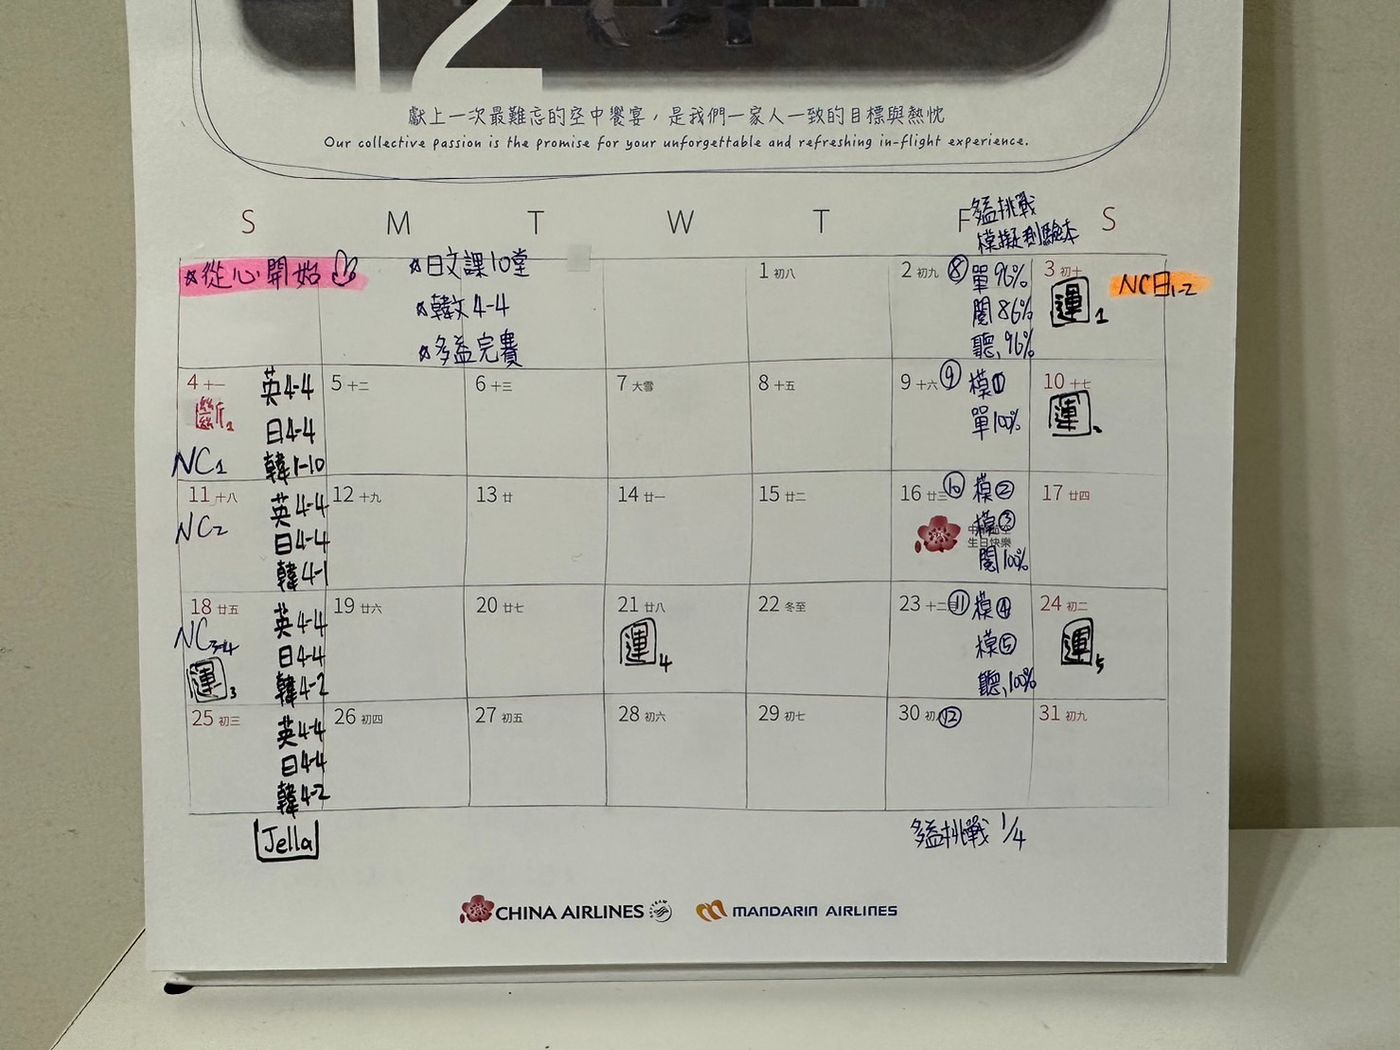 12
獻上一次最難忘的空中饗宴，是我們一家人一致的目標與熱忱
Our collective passion is the promise for your unforgettable and refreshing in-flight experience.
S M T W T F S
多益挑戰
模擬測驗本
☆從心開始
☆日文課10堂
☆韓文4-4
☆多益完賽
1 初八
2 初九
⑧ 單96%
閱86%
聽96%
3 初十
運1
NC日1-2
4 十一
斷1
NC1
英4-4
日4-4
韓1-10
5 十二
6 十三
7 大雪
8 十五
9 十六
⑨ 模①
單100%
10 十七
運2
11 十八
NC2
英4-4
日4-4
韓4-1
12 十九
13 廿
14 廿一
15 廿二
16 廿三
⑩ 模②
模③
閱100%
生日快樂
17 廿四
18 廿五
NC3-4
運3
英4-4
日4-4
韓4-2
19 廿六
20 廿七
21 廿八
運4
22 冬至
23 十二
⑪ 模④
模⑤
聽100%
24 初二
運5
25 初三
英4-4
日4-4
韓4-2
26 初四
27 初五
28 初六
29 初七
30 初
⑫
31 初九
Jella
多益挑戰 1/4
CHINA AIRLINES
MANDARIN AIRLINES